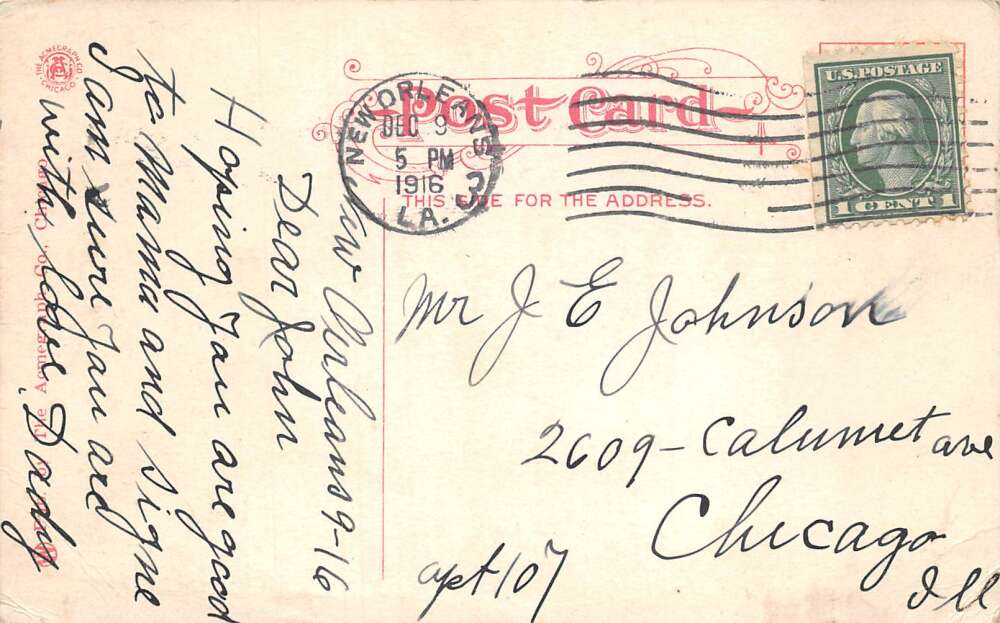 THE ACMEGRAPH CO.
CHICAGO
Post Card
THIS SIDE FOR THE ADDRESS.
NEW ORLEANS
DEC 9
5 PM
1916
LA.
3
U.S. POSTAGE
1 CENT 1
New Orleans 9-16
Dear John
Hoping You are good
to Mama and Signe
I am sure You are
with Love Dady
Mr J E Johnson
2609-Calumet ave
Chicago
Ill
apt 107
The Acmegraph Co., Chicago